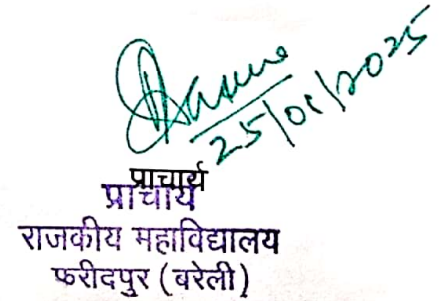 25/01/2025
प्राचार्य
प्राचार्य
राजकीय महाविद्यालय
फरीदपुर (बरेली)